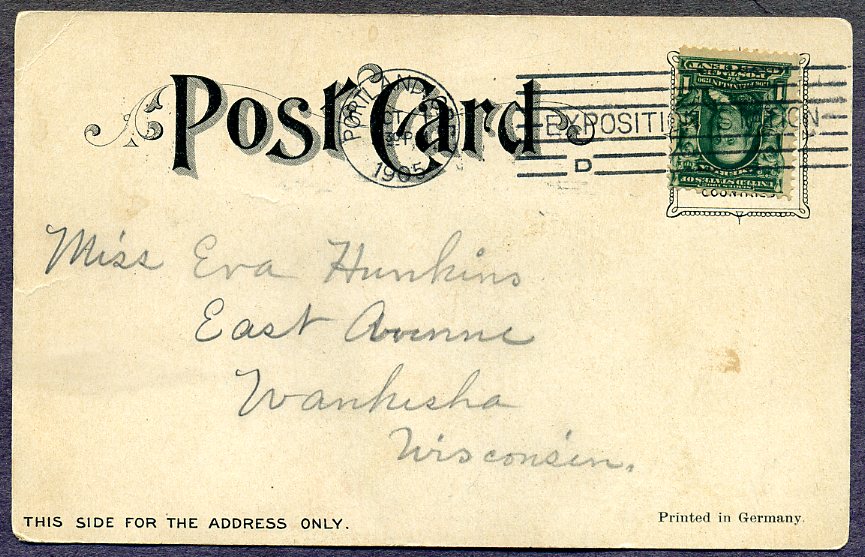 POST CARD
PORTLAND, ORE
OCT
3 - P
1905
EXPOSITION STATION
D
POSTAGE
UNITED STATES OF
COUNTRIES
Miss Eva Hunkins
East Avenue
Waukesha
Wisconsin.
THIS SIDE FOR THE ADDRESS ONLY.
Printed in Germany.